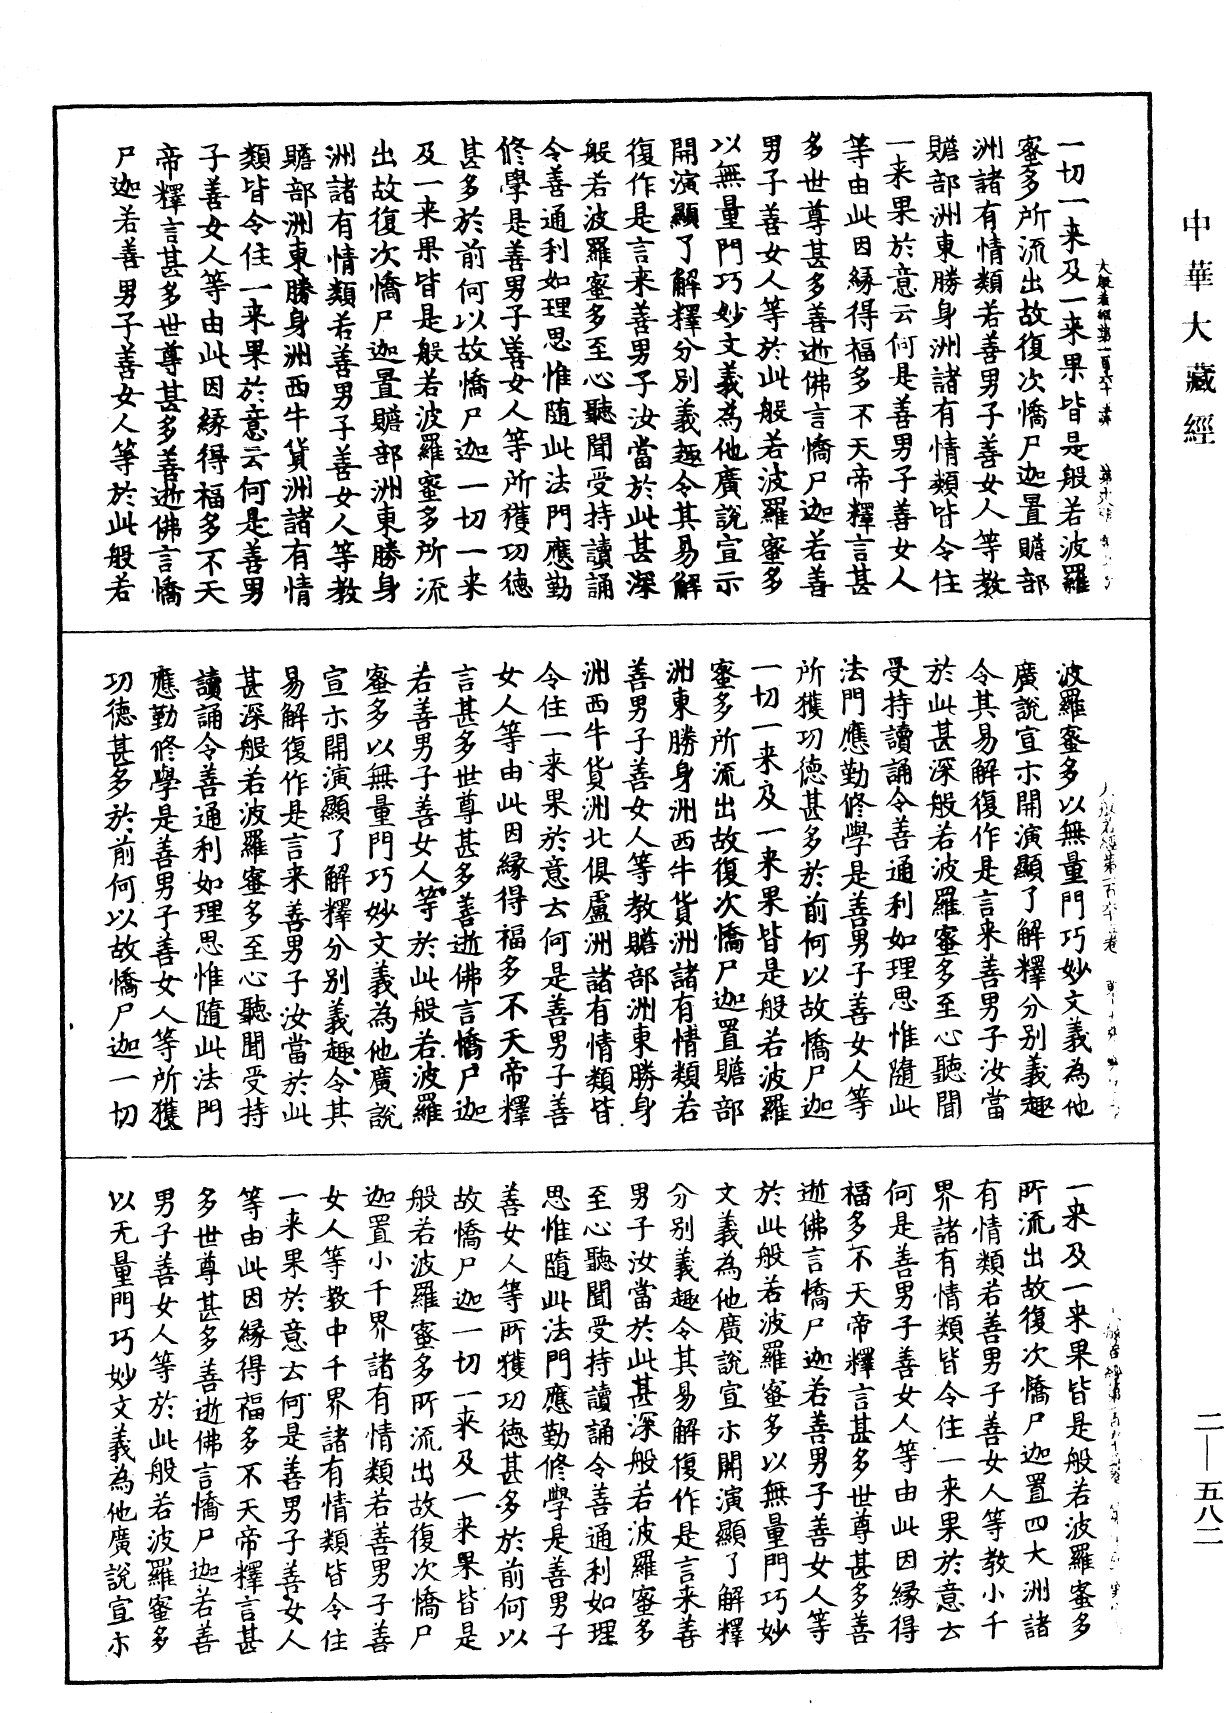 中華大藏經
一切一来及一来果皆是般若波羅
蜜多所流出故復次憍尸迦置贍部
洲諸有情類若善男子善女人等教
贍部洲東勝身洲諸有情類皆令住
一来果於意云何是善男子善女人
等由此因緣得福多不天帝釋言甚
多世尊甚多善逝佛言憍尸迦若善
男子善女人等於此般若波羅蜜多
以無量門巧妙文義為他廣說宣示
開演顯了解釋分別義趣令其易解
復作是言来善男子汝當於此甚深
般若波羅蜜多至心聽聞受持讀誦
令善通利如理思惟随此法門應勤
修學是善男子善女人等所獲功德
甚多於前何以故憍尸迦一切一来
及一来果皆是般若波羅蜜多所流
出故復次憍尸迦置贍部洲東勝身
洲諸有情類若善男子善女人等教
贍部洲東勝身洲西牛貨洲諸有情
類皆令住一来果於意云何是善男
子善女人等由此因緣得福多不天
帝釋言甚多世尊甚多善逝佛言憍
尸迦若善男子善女人等於此般若
波羅蜜多以無量門巧妙文義為他
廣說宣示開演顯了解釋分別義趣
令其易解復作是言来善男子汝當
於此甚深般若波羅蜜多至心聽聞
受持讀誦令善通利如理思惟隨此
法門應勤修學是善男子善女人等
所獲功德甚多於前何以故憍尸迦
一切一来及一来果皆是般若波羅
蜜多所流出故復次憍尸迦置贍部
洲東勝身洲西牛貨洲諸有情類若
善男子善女人等教贍部洲東勝身
洲西牛貨洲北俱盧洲諸有情類皆
令住一来果於意云何是善男子善
女人等由此因緣得福多不天帝釋
言甚多世尊甚多善逝佛言憍尸迦
若善男子善女人等於此般若波羅
蜜多以無量門巧妙文義為他廣說
宣示開演顯了解釋分別義趣令其
易解復作是言来善男子汝當於此
甚深般若波羅蜜多至心聽聞受持
讀誦令善通利如理思惟隨此法門
應勤修學是善男子善女人等所獲
功德甚多於前何以故憍尸迦一切
一来及一来果皆是般若波羅蜜多
所流出故復次憍尸迦置四大洲諸
有情類若善男子善女人等教小千
界諸有情類皆令住一来果於意云
何是善男子善女人等由此因緣得
福多不天帝釋言甚多世尊甚多善
逝佛言憍尸迦若善男子善女人等
於此般若波羅蜜多以無量門巧妙
文義為他廣說宣示開演顯了解釋
分別義趣令其易解復作是言来善
男子汝當於此甚深般若波羅蜜多
至心聽聞受持讀誦令善通利如理
思惟隨此法門應勤修學是善男子
善女人等所獲功德甚多於前何以
故憍尸迦一切一来及一来果皆是
般若波羅蜜多所流出故復次憍尸
迦置小千界諸有情類若善男子善
女人等教中千界諸有情類皆令住
一来果於意云何是善男子善女人
等由此因緣得福多不天帝釋言甚
多世尊甚多善逝佛言憍尸迦若善
男子善女人等於此般若波羅蜜多
以无量門巧妙文義為他廣說宣示
二—五八二